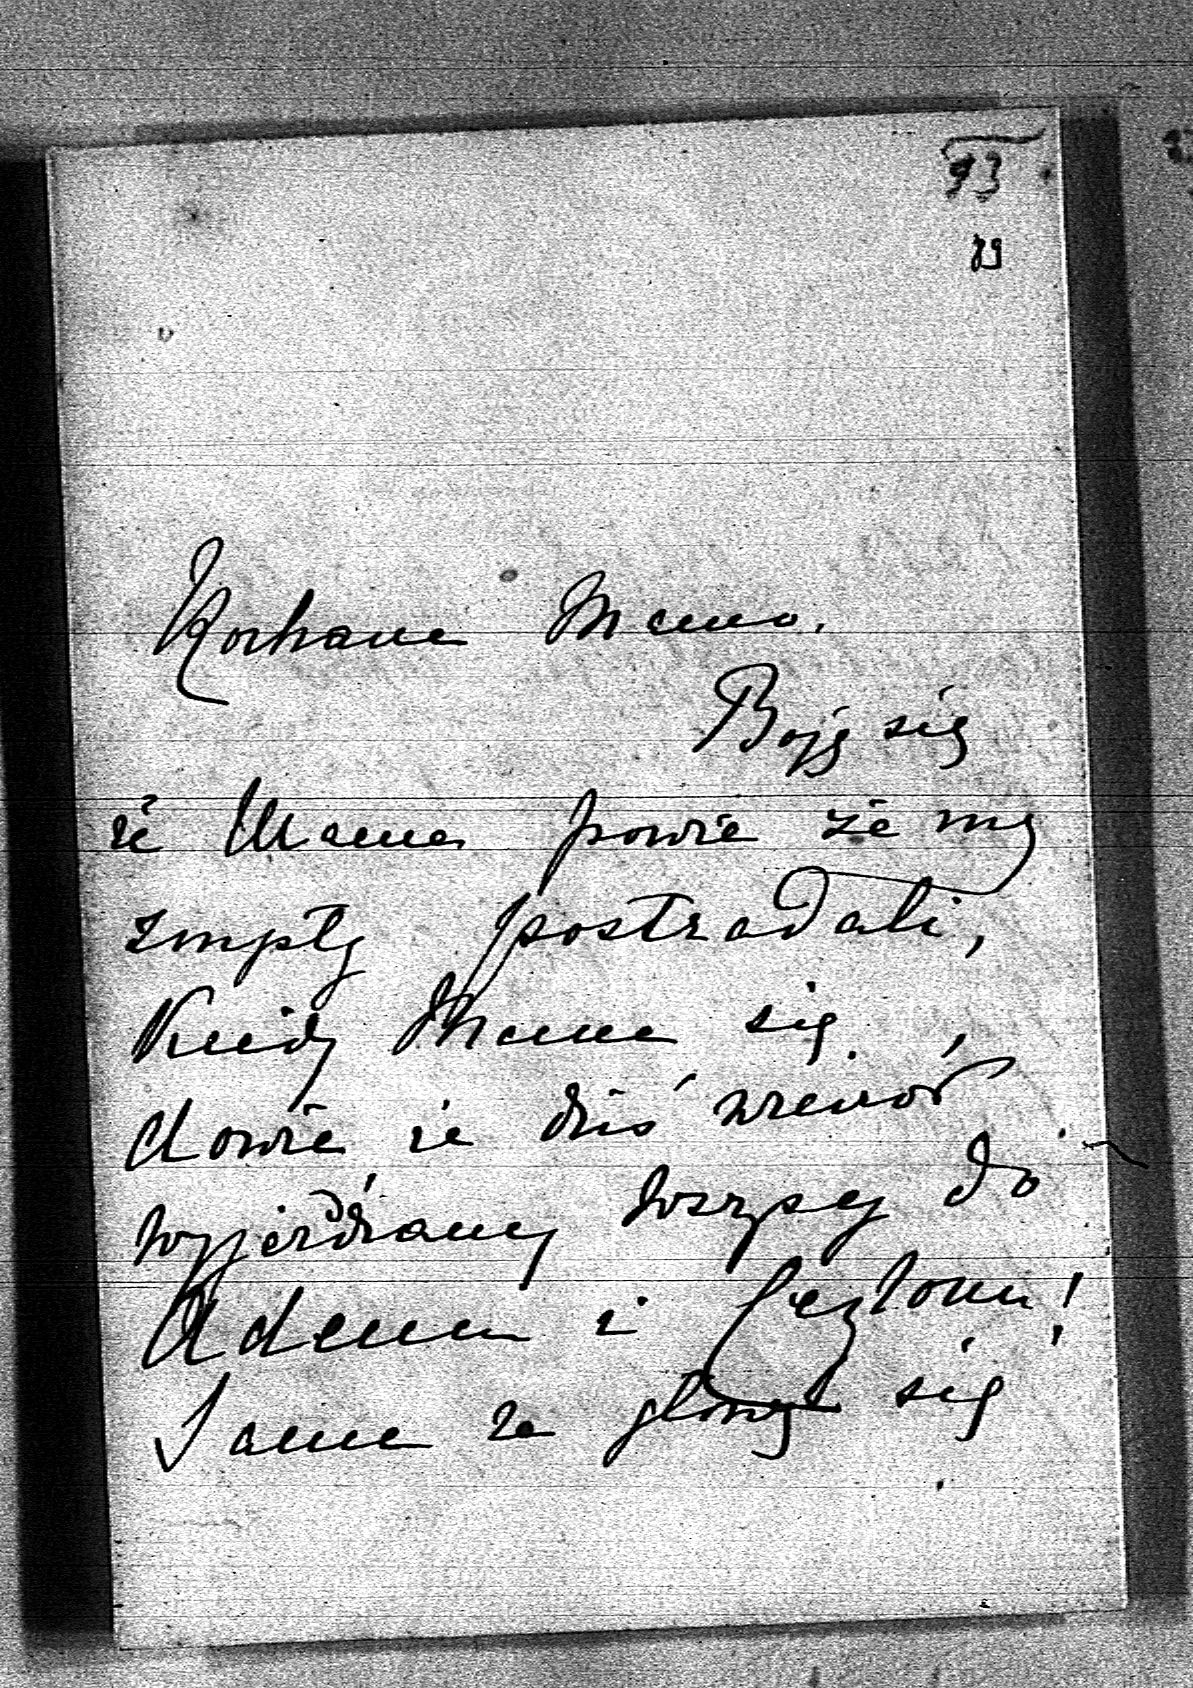 93
79
Kochana Mamo.
Boję się
że Mama powie że my
zmysły postradali,
Kiedy Mama się
dowie, że dziś wieczór
wyjeżdżamy wszyscy do
Adenu i Ceylonu!
Sama za głowę się